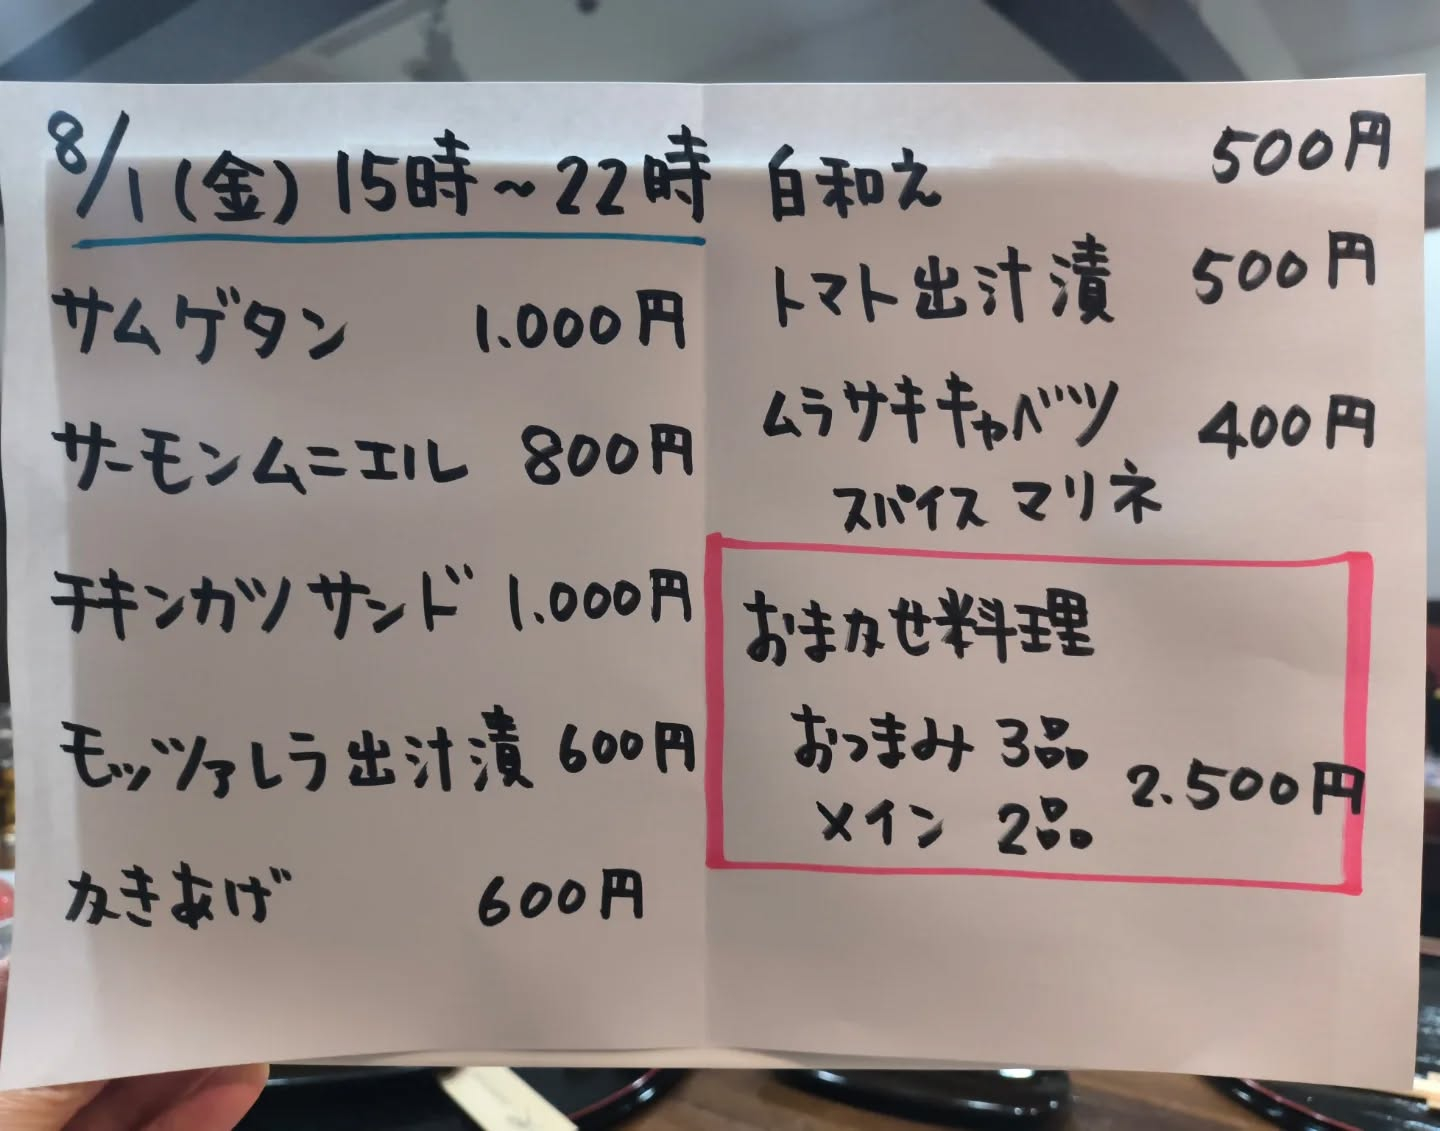 8/1(金) 15時～22時
サムゲタン 1.000円
サーモンムニエル 800円
チキンカツサンド 1.000円
モッツァレラ出汁漬 600円
かきあげ 600円
白和え 500円
トマト出汁漬 500円
ムラサキキャベツ 400円
スパイスマリネ
おまかせ料理
おつまみ 3品
2.500円
メイン 2品